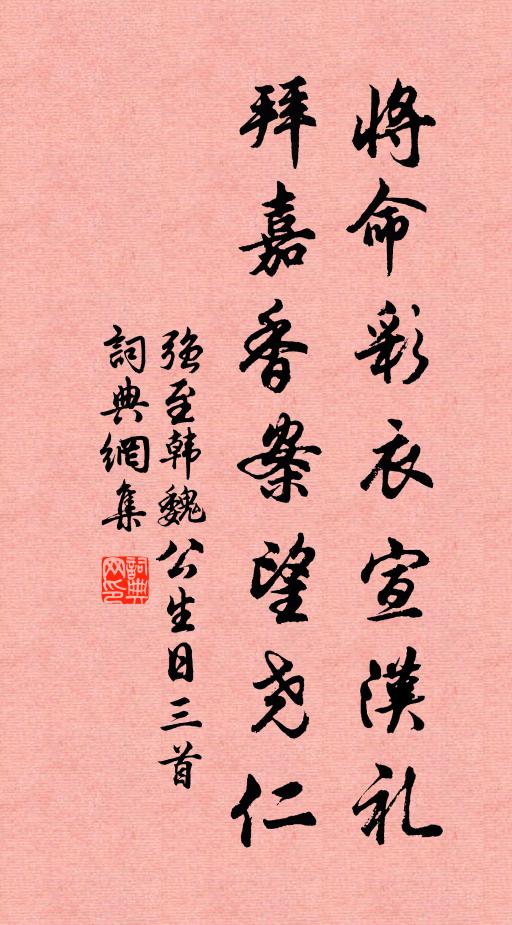 将命彩衣宣漢礼
拜嘉香案望尧仁
强至韩魏公生日三首
詞典網集
詞典网印